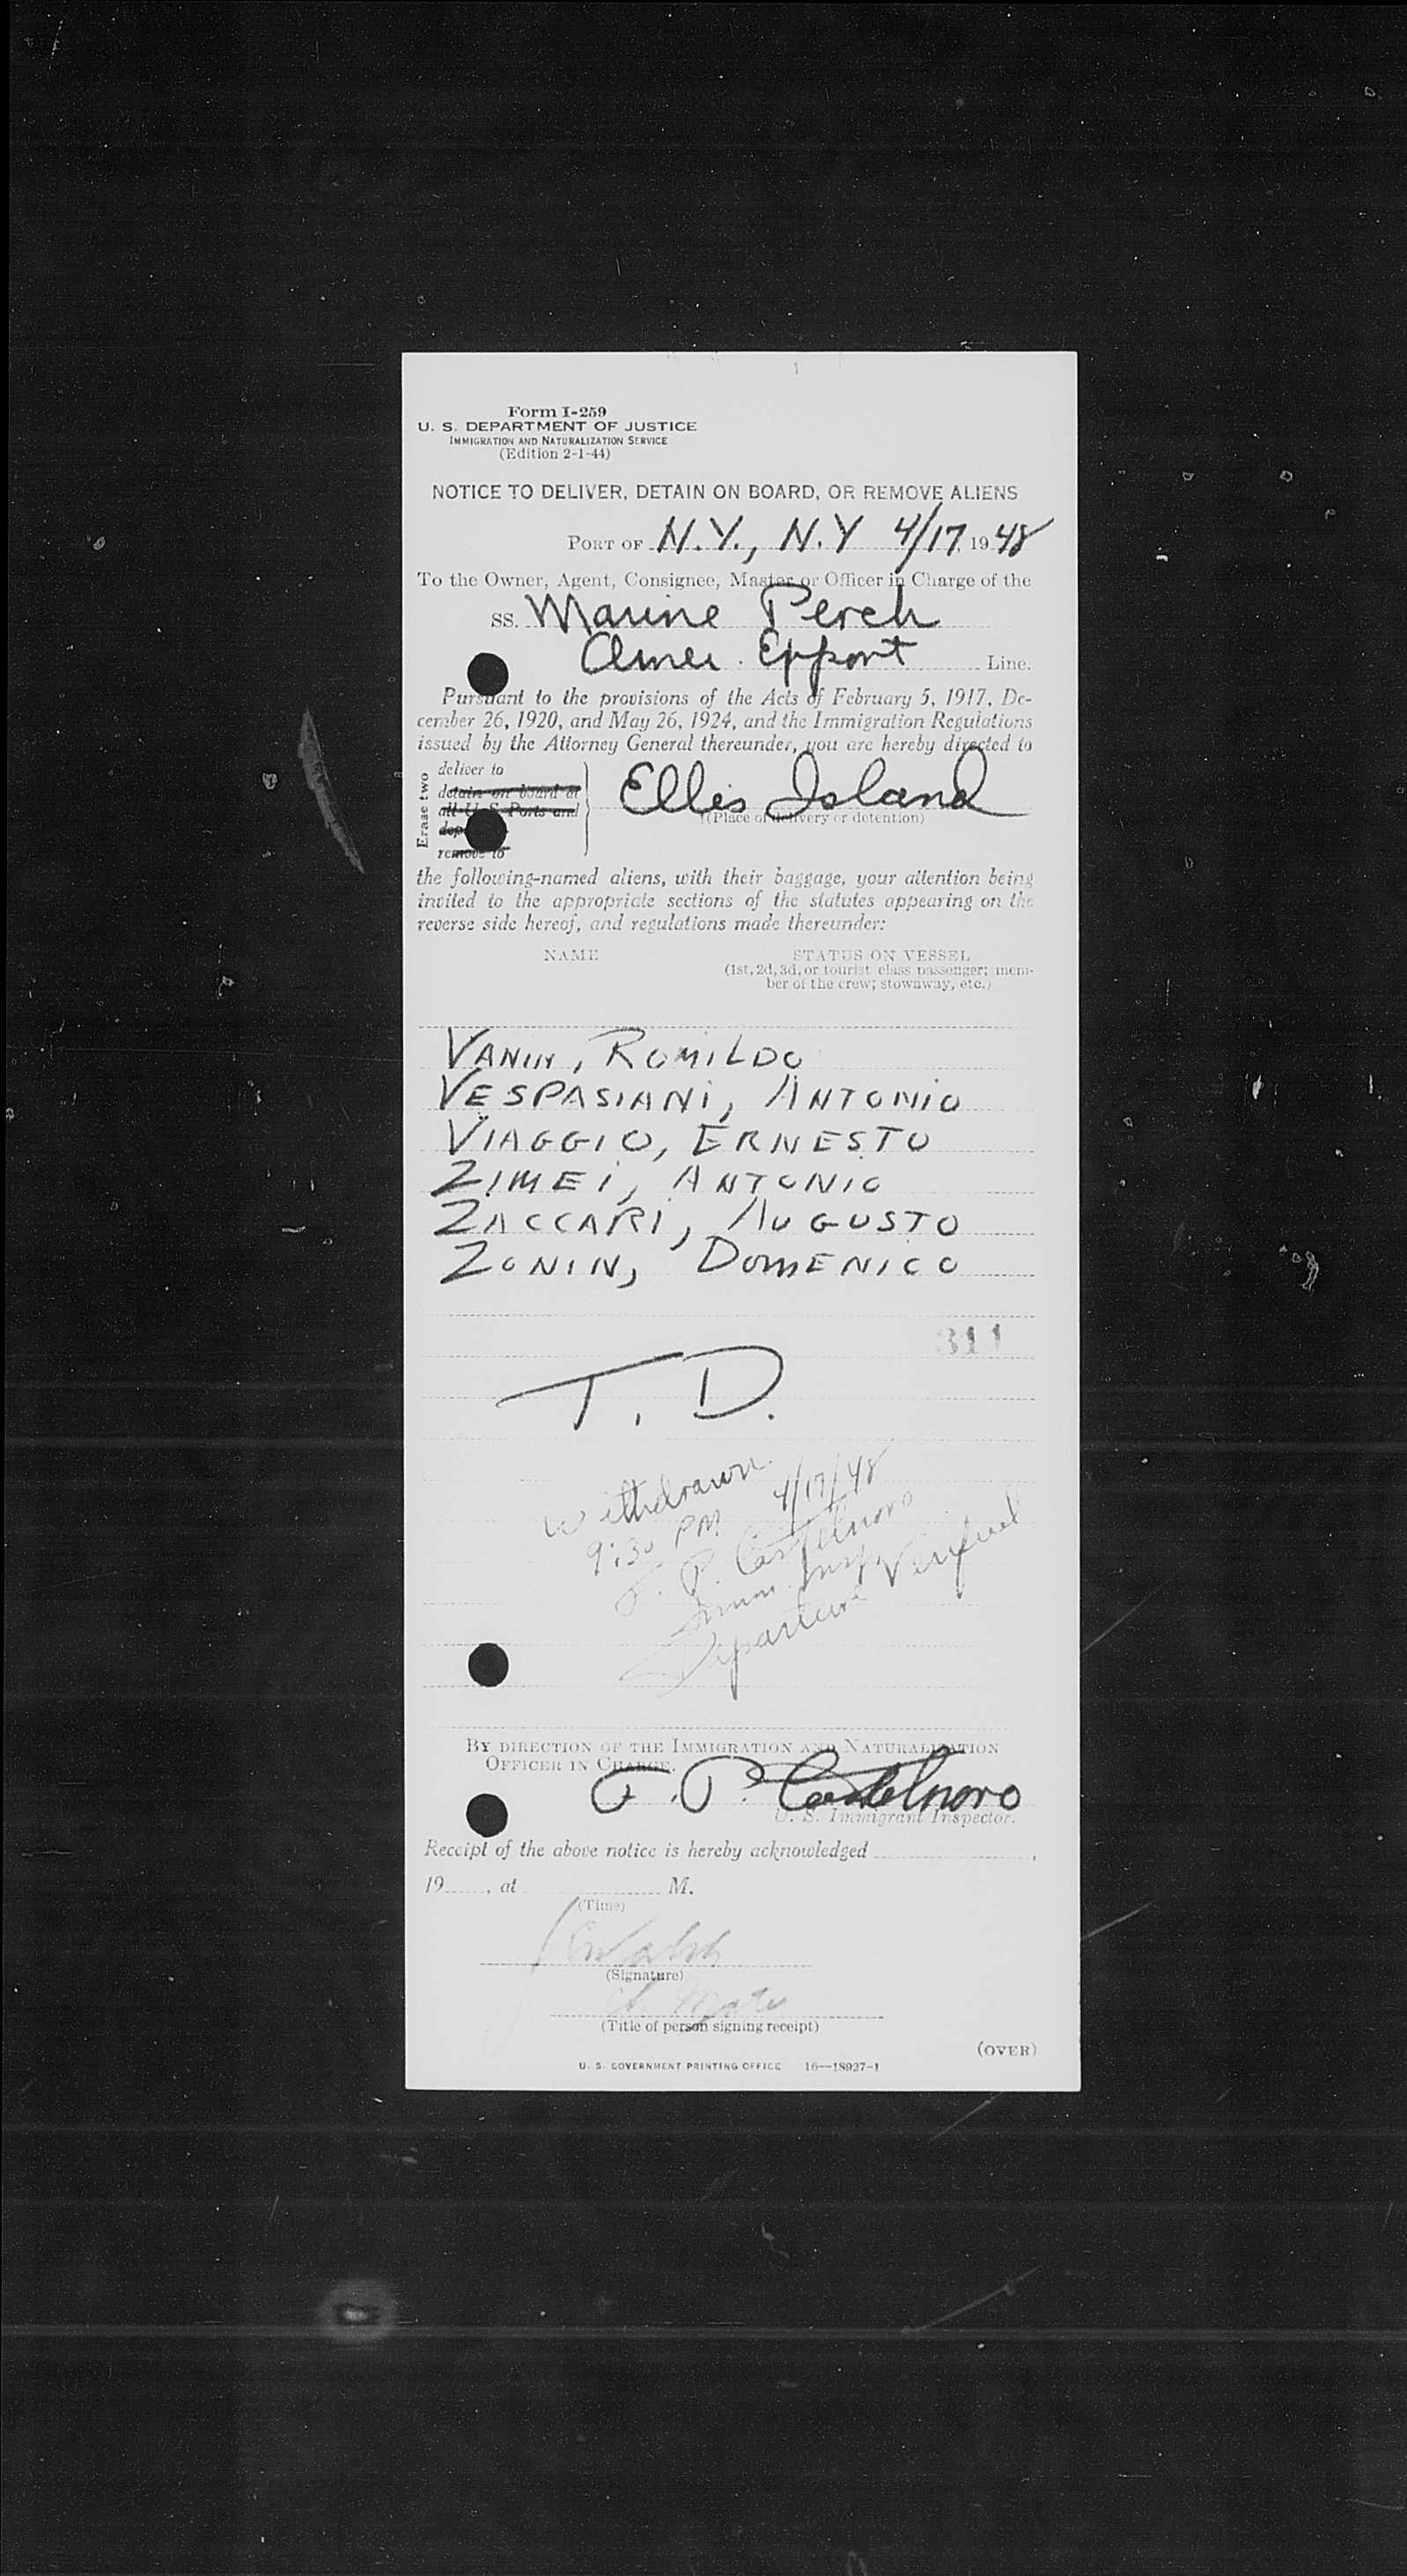 Form I-259
U. S. DEPARTMENT OF JUSTICE
IMMIGRATION AND NATURALIZATION SERVICE
(Edition 2-1-44)
NOTICE TO DELIVER, DETAIN ON BOARD, OR REMOVE ALIENS
PORT OF N.Y., N.Y 4/17, 1948
To the Owner, Agent, Consignee, Master or Officer in Charge of the
SS. Marine Perch
Amer. Export Line.
Pursuant to the provisions of the Acts of February 5, 1917, De-
cember 26, 1920, and May 26, 1924, and the Immigration Regulations
issued by the Attorney General thereunder, you are hereby directed to
Erase two
deliver to
detain on board at
all U S Ports and
dep
remove to
Ellis Island
(Place of delivery or detention)
the following-named aliens, with their baggage, your attention being
invited to the appropriate sections of the statutes appearing on the
reverse side hereof, and regulations made thereunder:
NAME STATUS ON VESSEL
(1st, 2d, 3d, or tourist class passenger; mem-
ber of the crew; stowaway, etc.)
VANIN, ROMILDO
VESPASIANI, ANTONIO
VIAGGIO, ERNESTO
ZIMEI, ANTONIO
ZACCARI, AUGUSTO
ZONIN, DOMENICO
311
T. D.
Withdrawn
9:30 PM 4/17/48
F. P. Castelnovo
Imm. Insp.
Departure Verified
BY DIRECTION OF THE IMMIGRATION AND NATURALIZATION
OFFICER IN CHARGE.
F. P. Castelnovo
U. S. Immigrant Inspector.
Receipt of the above notice is hereby acknowledged ,
19 , at M.
(Time)
Walsh
(Signature)
Mate
(Title of person signing receipt)
(OVER)
U. S. GOVERNMENT PRINTING OFFICE 16—18927-1